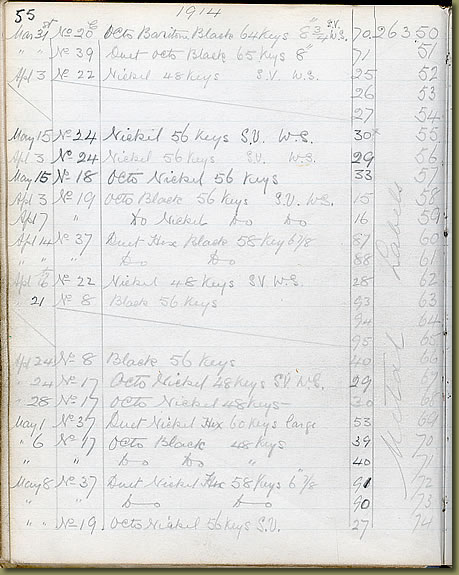 55 1914
Mar 31st No 20 Octo Baritone Black 64 Keys 8"3/4 S.V. W.S. 70 26350
" " No 39 Duet Octo Black 65 Keys 8" 71 51
Apl 3 No 22 Nickel 48 Keys S.V. W.S. 25 52
26 53
27 54
May 15 No 24 Nickel 56 Keys S.V. W.S. 30 55
Apl 3 No 24 Nickel 56 Keys S.V. W.S. 29 56
May 15 No 18 Octo Nickel 56 Keys 33 57
Apl 3 No 19 Octo Black 56 Keys S.V. W.S. 15 58
Apl 7 " Do Nickel Do Do 16 59
Apl 14 No 37 Duet Hex Black 58 Key 6"7/8 87 60
" " " Do Do 88 61
Apl 16 No 22 Nickel 48 Keys SV W.S. 28 62
21 No 8 Black 56 Keys 93 63
94 64
95 65
Apl 24 No 8 Black 56 Keys 40 66
" 24 No 17 Octo Nickel 48 Keys SV W.S. 29 67
" 28 No 17 Octo Nickel 48 Keys 30 68
May 1 No 37 Duet Nickel Hex 60 Keys large 53 69
" 6 No 17 Octo Black 48 Keys 39 70
" " " Do Do " 40 71
May 8 No 37 Duet Nickel Hex 58 Keys 6"7/8 91 72
" " " Do Do 90 73
" " No 19 Octo Nickel 56 Keys S.V. 27 74
Labels